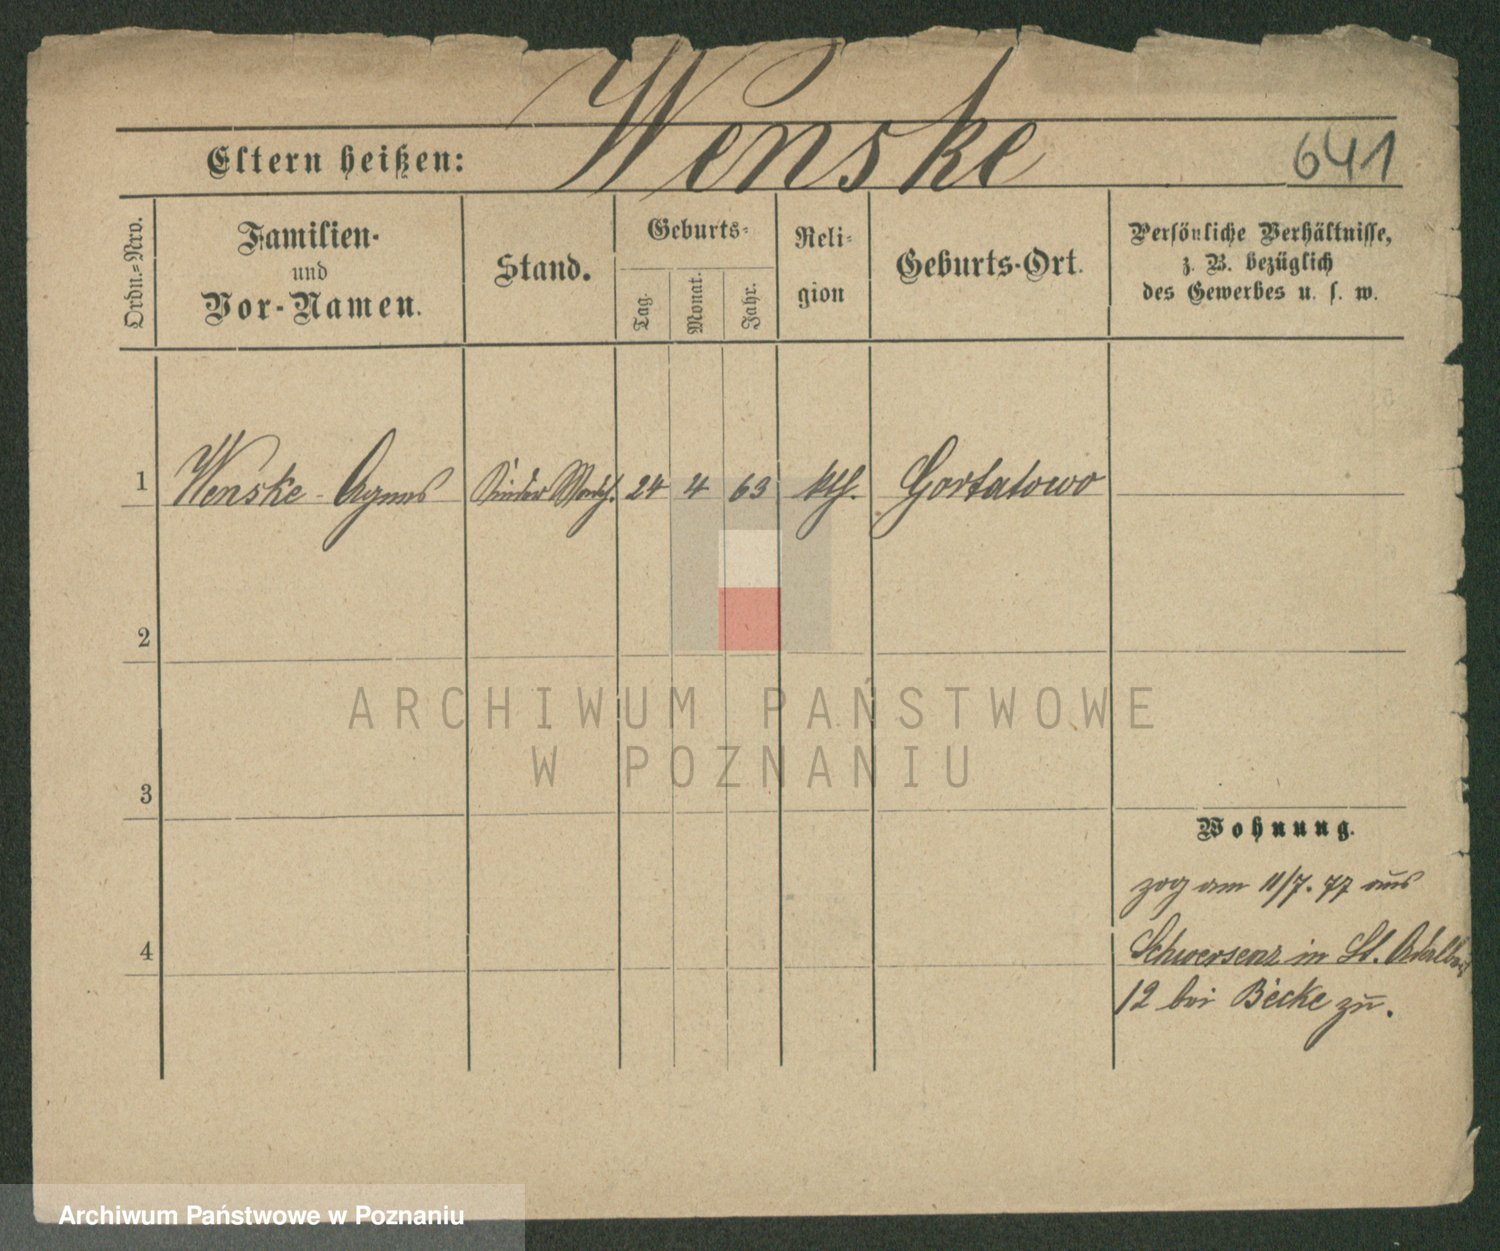 Wenske
Eltern heißen:
641
Ordn.=Nro.
Familien-
und
Vor-Namen.
Stand.
Geburts=
Tag.
Monat.
Jahr.
Reli=
gion
Geburts-Ort.
Persönliche Verhältnisse,
z. B. bezüglich
des Gewerbes u. s. w.
1 Wenske Agnes Kinder 24 4 63 kth. Gortatowo
2
3
4
Wohnung.
zog am 11/7. 77 aus
Schwersenz in St. Adalbert
12 bei Becke zu.
ARCHIWUM PAŃSTWOWE
W POZNANIU
Archiwum Państwowe w Poznaniu